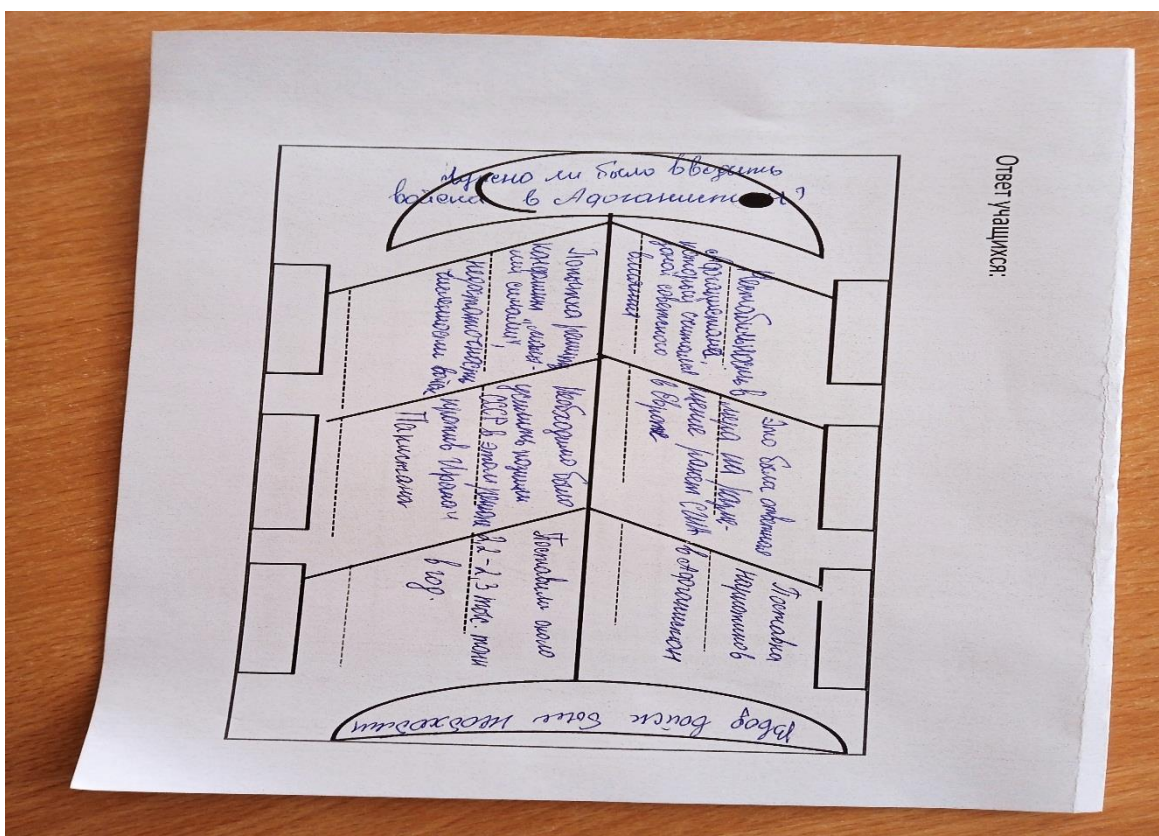 Ответ учащихся:
Нужно ли было вводить
войска в Афганистан?
Нестабильность в
Афганистане,
который считался
зоной советского
влияния
Это была ответная
мера на разме-
щение ракет США
в Европе
Поставка
наркотиков
в Афганистан
Попытка решить
конфликт "малы-
ми силами",
недостаточность
численности войск
Необходимо было
усилить позиции
СССР в этом регионе
против Ирана и
Пакистана
Поставили около
2,2-2,3 тыс. тонн
в год.
Ввод войск более необходим